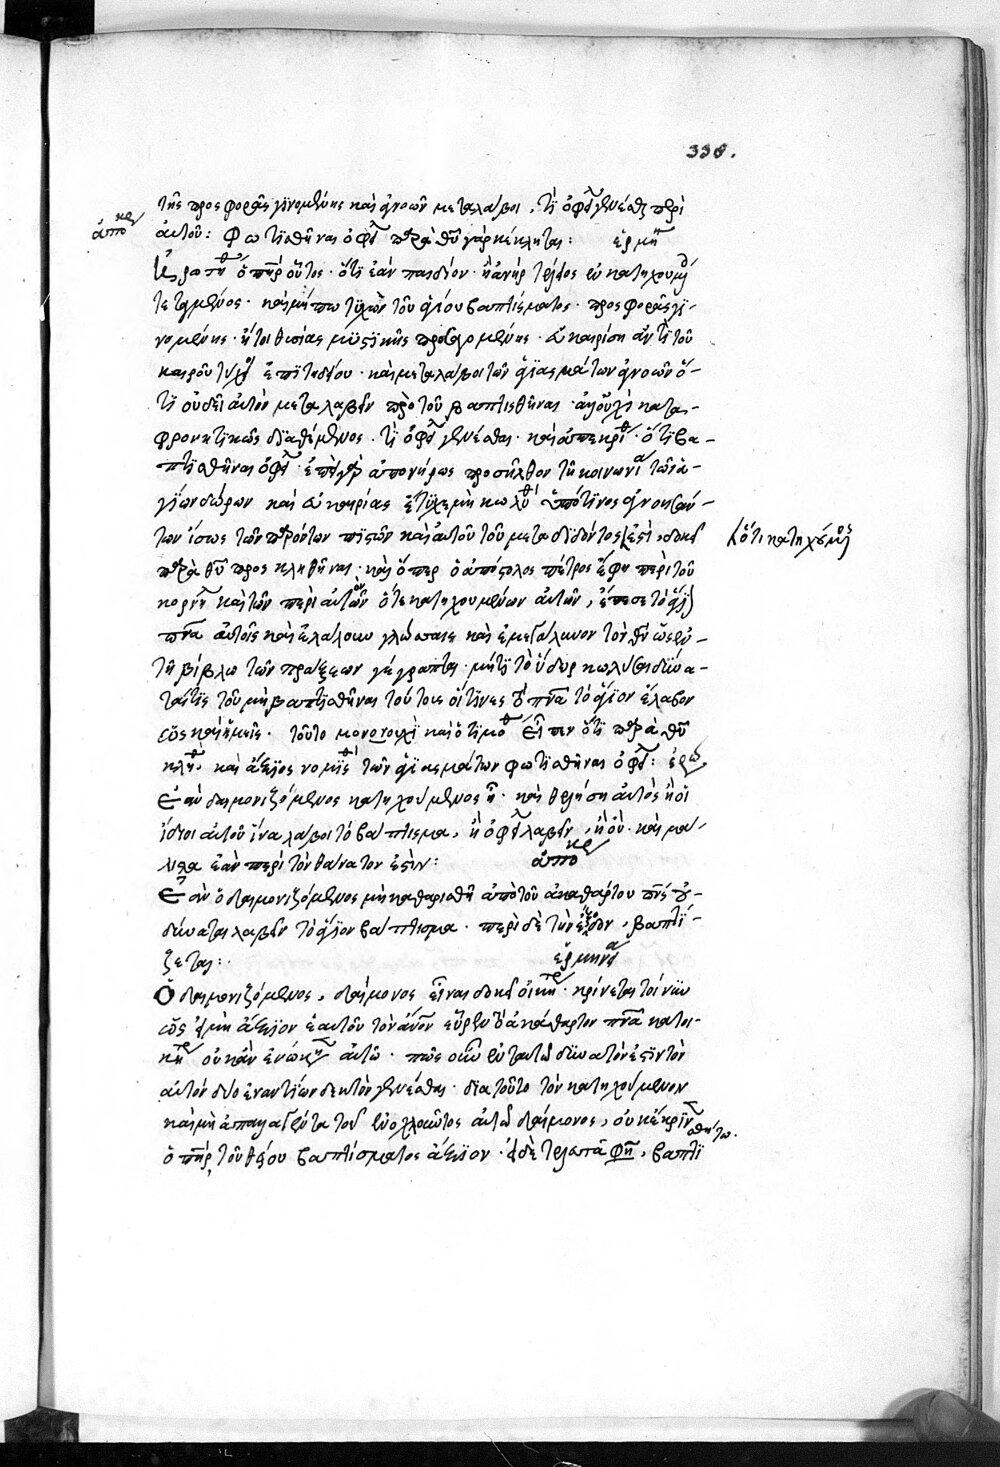 338.
τῆς προσφορᾶς γινομένης καὶ ἀγνοῶν μεταλάβοι, τί ὀφείλει γενέσθαι περὶ
ἀποκρ
αὐτοῦ: Φωτισθῆναι ὀφείλει παρὰ θυ γὰρ κέκληται: ἑρμη
Ἠρωτήθη ὁ πηρ οὗτος· ὅτι ἐὰν παιδίον· ἢ ἀνὴρ τέλειος ἐν κατηχουμένοις
τεταγμένος· καὶ μήπω τυχὼν τοῦ ἁγίου βαπτίσματος· προσφορᾶς γι-
νομένης· ἤτοι θυσίας μυστικῆς προσαγομένης· ἀκαιρίσῃ ἀντὶ τοῦ
καιροῦ τύχῃ ἐπιτηδείου· καὶ μεταλάβοι τῶν ἁγιασμάτων ἀγνοῶν ὅ-
τι οὐ δεῖ αὐτὸν μεταλαβεῖν πρὸ τοῦ βαπτισθῆναι· ἀλλ' οὐχὶ κατα-
φρονητικῶς διαθέμενος· τί ὀφείλει γενέσθαι· καὶ ἀπεκρίθη· ὅτι βα-
πτισθῆναι ὀφείλει· ἐπεὶ γὰρ ἀπονήρως προσῆλθον τῇ κοινωνίᾳ τῶν ἁ-
γίων δώρων καὶ εὐκαιρίας ἔτυχε μὴ κωλυθεὶς ὑπό τινος ἀγνοησάν-
των ἴσως τῶν παρόντων πιστῶν καὶ αὐτοῦ τοῦ μεταδιδόντος ἐστί, δοκεῖ
ὅτι κατηχούμενος
παρὰ θυ προσκληθῆναι· καὶ ὅπερ ὁ ἀπόστολος πέτρος ἔφη περὶ τοῦ
κορνηλίου καὶ τῶν περὶ αὐτὸν ὅτε κατηχουμένων αὐτῶν, ἔπεσε τὸ ἅγιον
πνα αὐτοῖς καὶ ἐλάλουν γλώσσαις καὶ ἐμεγάλυνον τὸν θν ὡς ἐν
τῇ βίβλῳ τῶν πράξεων γέγραπται· μήτι τὸ ὕδωρ κωλῦσαι δύνα-
ταί τις τοῦ μὴ βαπτισθῆναι τούτους οἵτινες τὸ πνα τὸ ἅγιον ἔλαβον
ὡς καὶ ἡμεῖς· τοῦτο μονονουχὶ καὶ ὁ τιμόθεος εἶπεν ὅτι παρὰ θυ
κληθεὶς καὶ ἄξιος νομισθεὶς τῶν ἁγιασμάτων φωτισθῆναι ὀφείλει: ἐρώ
Ἐὰν δαιμονιζόμενος κατηχούμενος ᾖ· καὶ θελήσῃ αὐτὸς ἢ οἱ
ἴδιοι αὐτοῦ ἵνα λάβοι τὸ βάπτισμα, ἢ ὀφείλει λαβεῖν, ἢ οὔ· καὶ μά-
λιστα ἐὰν περὶ τὸν θάνατον ἐστίν: ἀποκρ
Ἐὰν ὁ δαιμονιζόμενος μὴ καθαρισθῇ ἀπὸ τοῦ ἀκαθάρτου πνς οὐ
δύναται λαβεῖν τὸ ἅγιον βάπτισμα· περὶ δὲ τὴν ἔξοδον, βαπτί-
ζεται: ἑρμηνεία
Ὁ δαιμονιζόμενος, δαίμονος εἶναι δοκεῖ οἰκητήριον· κρίνεται τοίνυν
ὡς μὴ ἄξιον ἑαυτοῦ τὸν ἄνον εὑρεῖν τὸ ἀκάθαρτον πνα κατοι-
κητήριον οὐκ ἂν ἐνῴκησεν αὐτῷ· πῶς οὖν ἐν ταυτῷ δυνατὸν ἐστὶν τὸν
αὐτὸν δύο ἐναντίων δεκτὸν γενέσθαι· διατοῦτο τὸν κατηχούμενον
καὶ μὴ ἀπαλλαγέντα τοῦ ἐνοχλοῦντος αὐτῷ δαίμονος, οὐ κέκρινεν
ὁ πηρ, τοῦ θείου βαπτίσματος ἄξιον· εἰ δὲ τελευτᾶ φη, βαπτι
σθήτω.